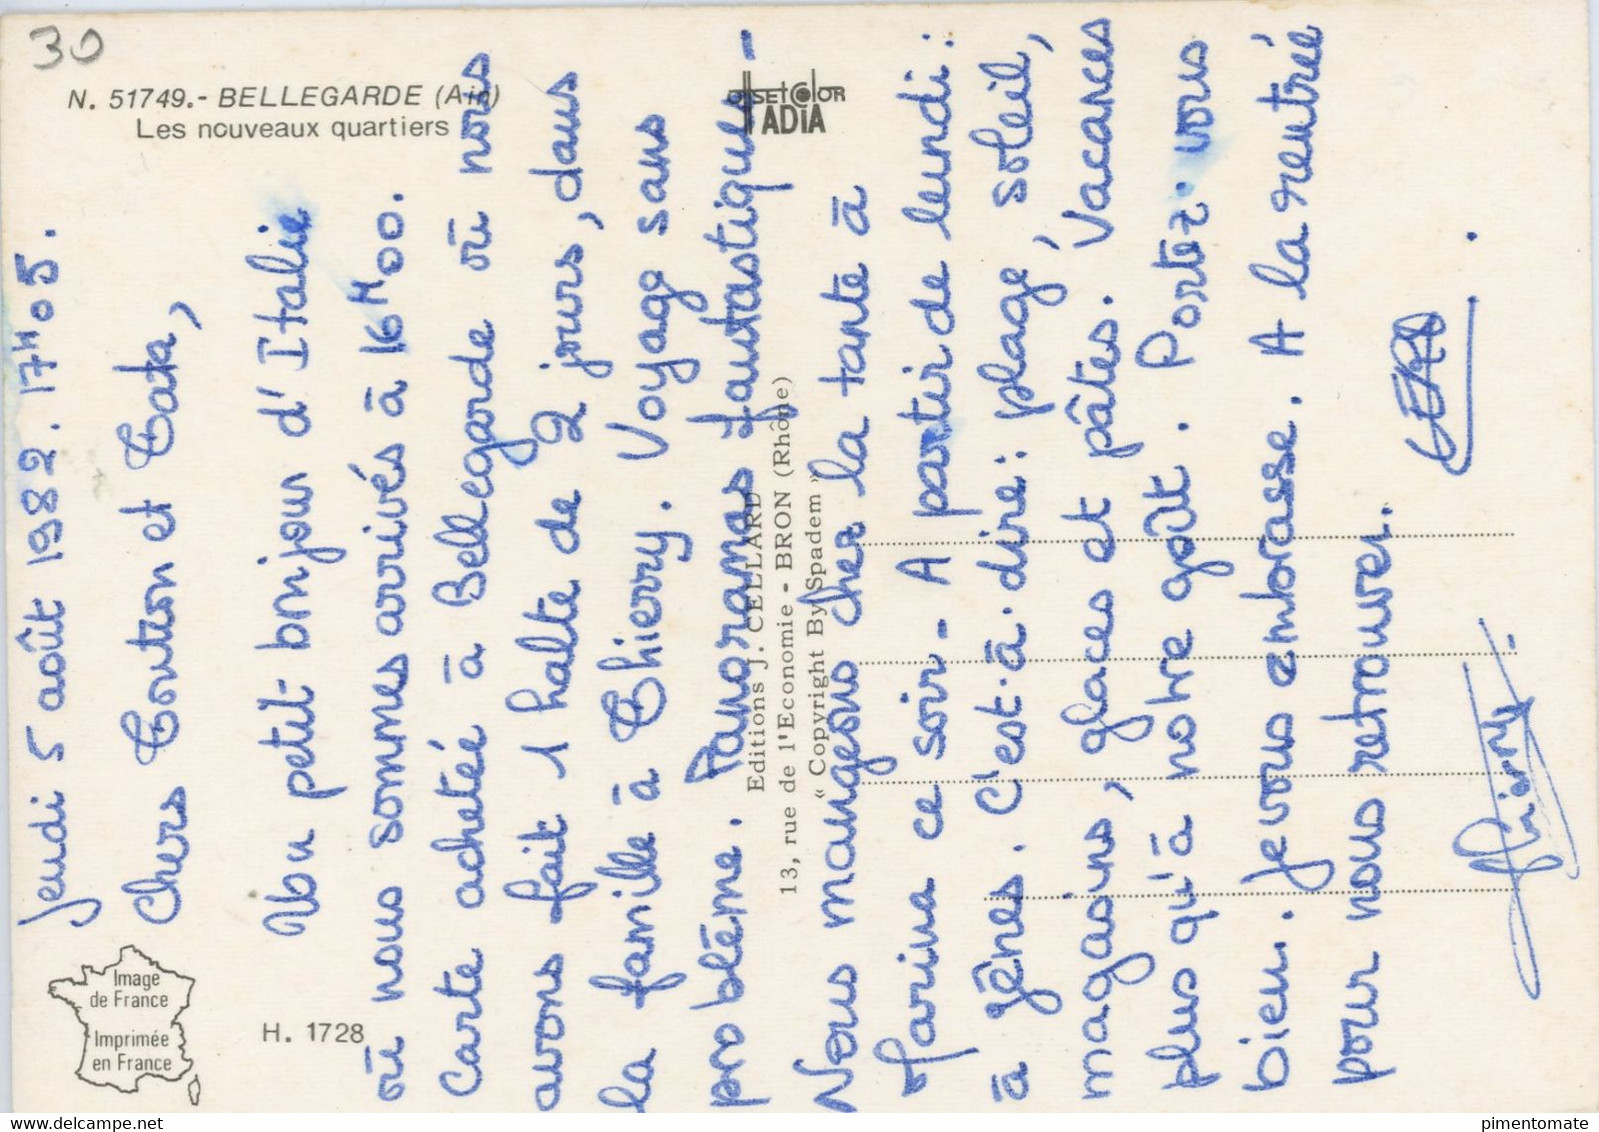 30
N. 51749.- BELLEGARDE (Ain)
Les nouveaux quartiers
OFFSET COLOR
ADIA
Image
de France
Imprimée
en France
H. 1728
Editions J. CELLARD
13, rue de l'Economie - BRON (Rhône)
« Copyright By Spadem »
Jeudi 5 août 1982. 17H05.
Chers Tonton et Tata,
Un petit bonjour d'Italie
où nous sommes arrivés à 16H00.
Carte achetée à Bellegarde où nous
avons fait 1 halte de 2 jours, dans
la famille à Thierry. Voyage sans
problème. Panoramas fantastiques-
Nous mangeons chez la tante à
Marina ce soir - A partir de lundi :
à Gênes. C'est-à-dire : plage, soleil,
magasins, glaces et pâtes. Vacances
plus qu'à notre goût. Portez-vous
bien. Je vous embrasse. A la rentrée
pour nous retrouver.
Thierry
pimentomate